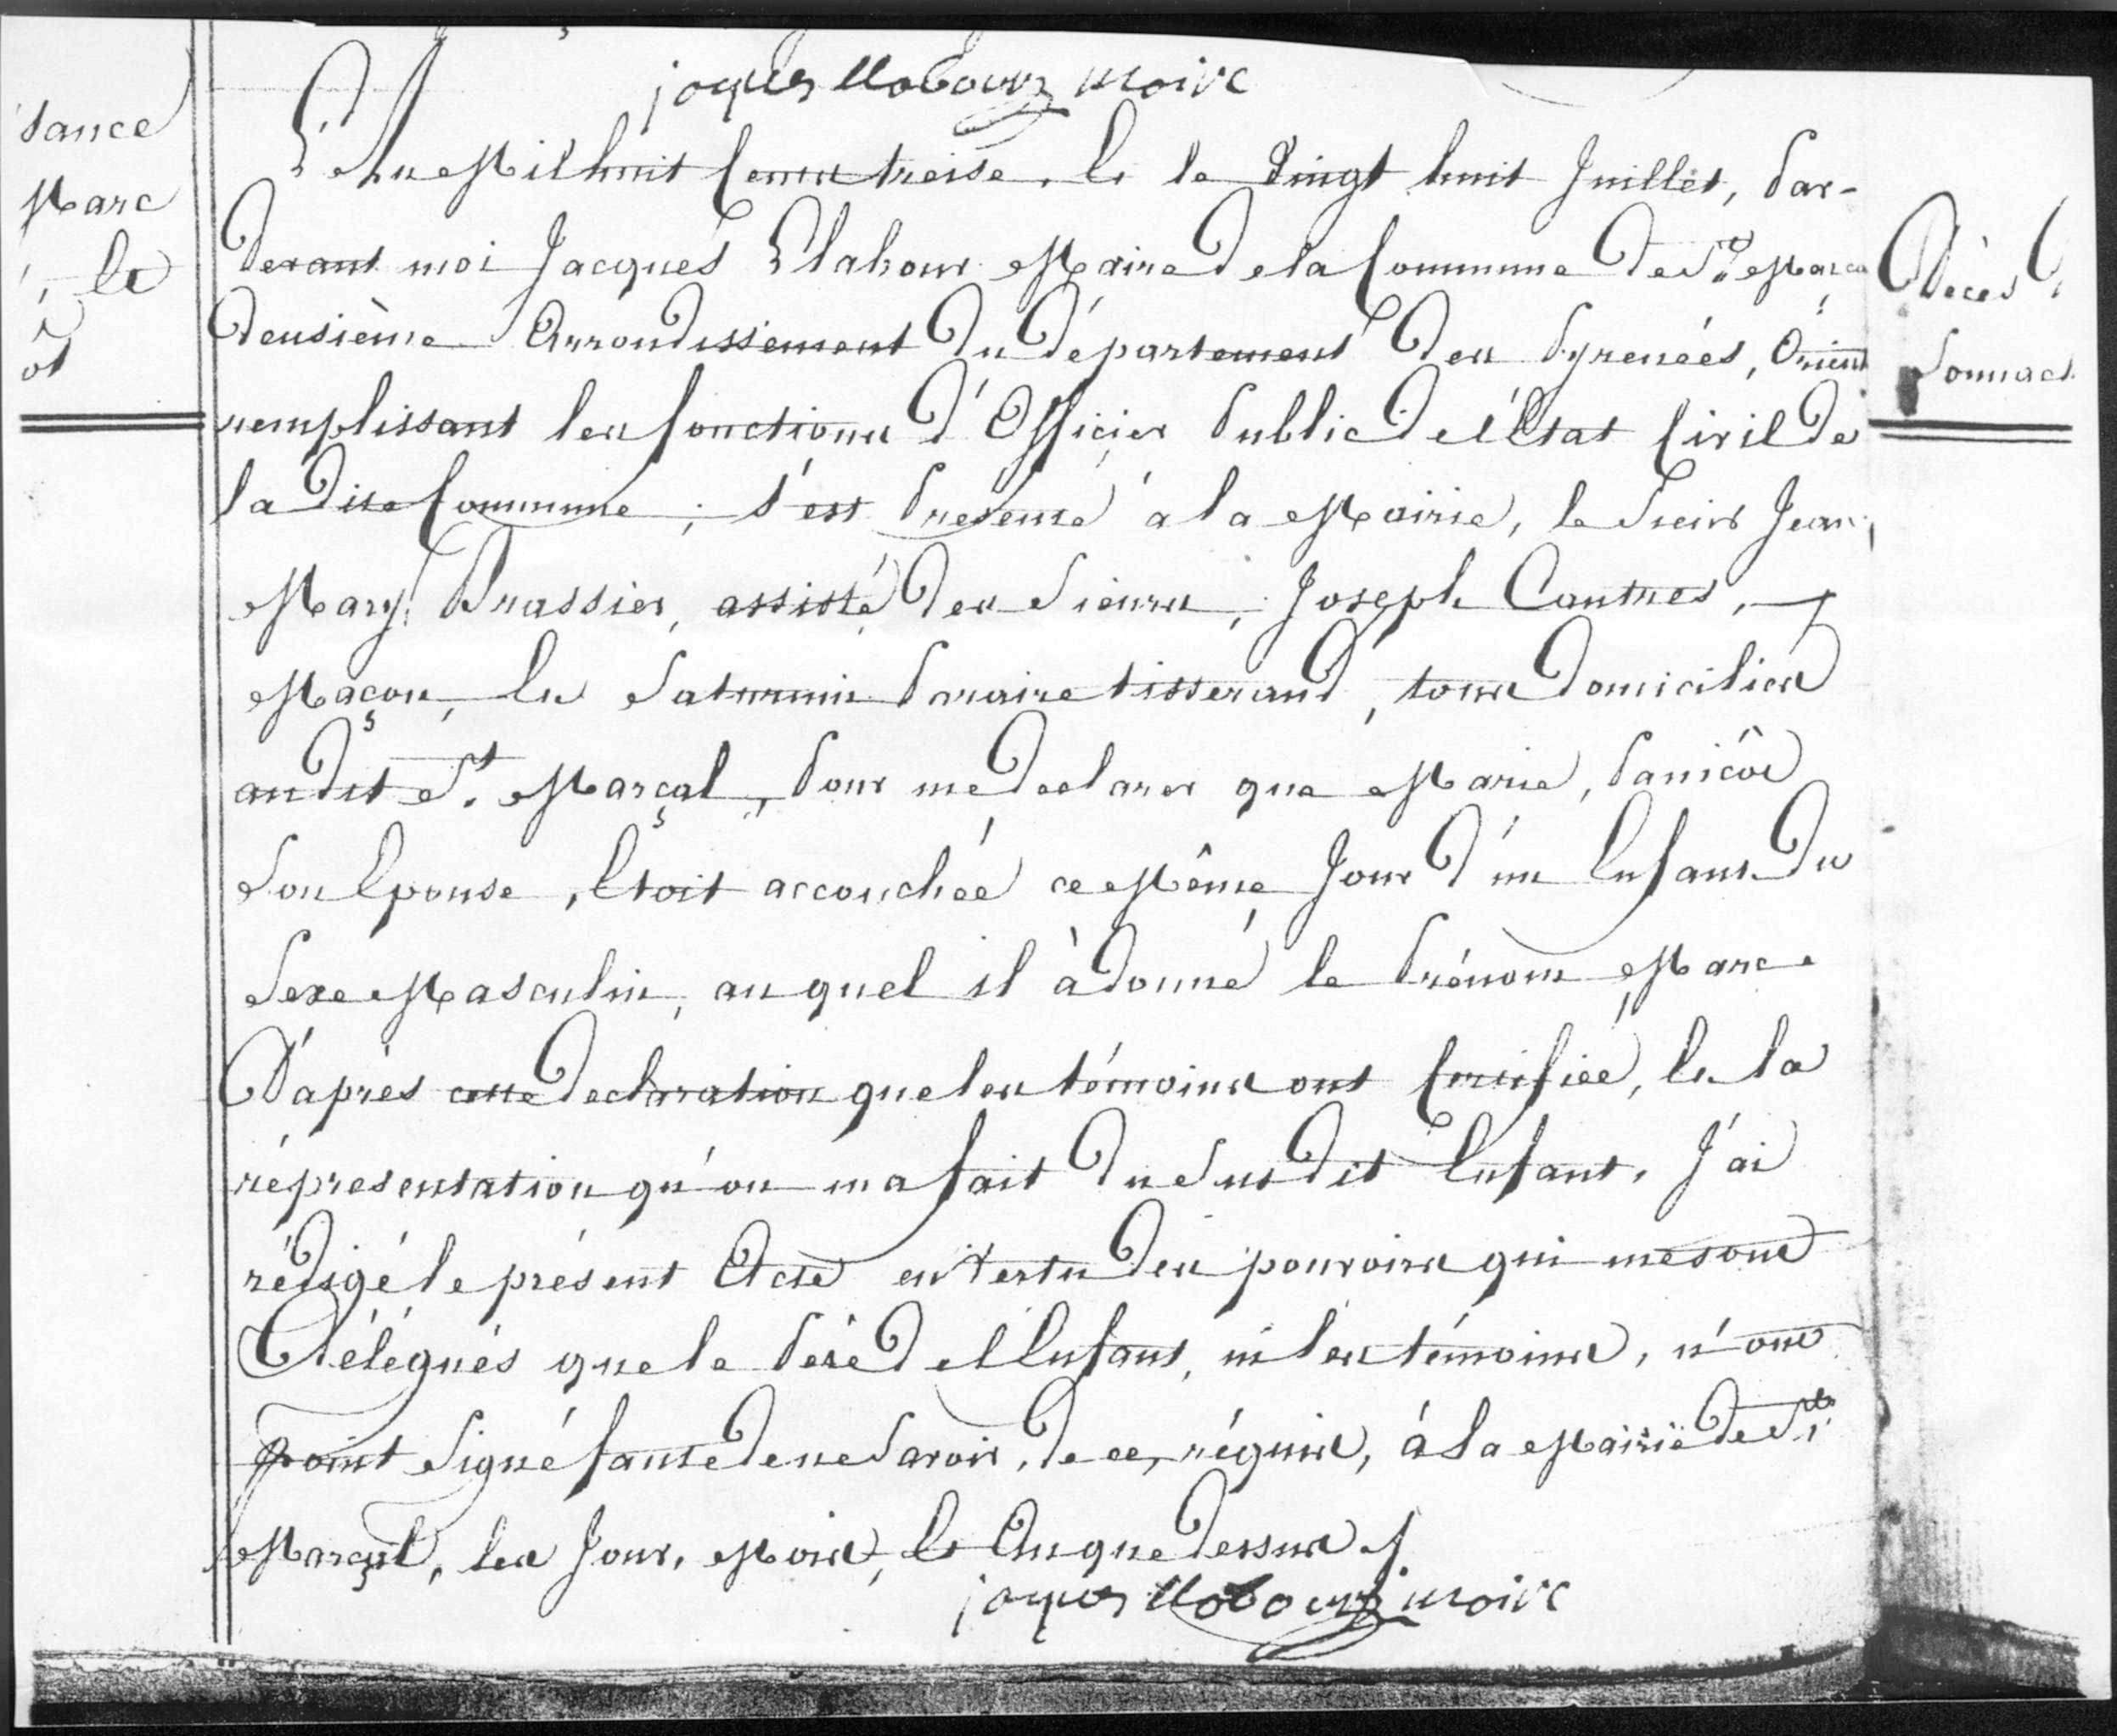 jaques llabour maire
L'An Mil huit Cent treise, Et le Vingt huit Juillet, Par-
devant moi Jacques Llabour Maire de la Commune de St. Marça
deusième Arrondissement du département des Pyrenées, Orient
remplissant les fonctions d'Officier Public de l'État Civil de
la dite Commune ; s'est Presenté à la Mairie, le Sieur Jean,
Mary. Brassier, assisté des Sieurs, Joseph Cantués,
Maçon, Et Saturnin tisserand, tous domiciliés
audit St. Marçal, Pour me declarer que Marie, Panicôt
Son Epouse, Etoit accouchée ce Même Jour d'un Enfant du
Sexe Masculin, auquel il à donné le Prénom Marc
D'après cette declaration que les témoins ont Certifiée, Et la
réprésentation qu'on ma fait du Susdit Enfant, J'ai
rédigé le présent Acte en Vertu des pouvoirs qui me sont
Délégués que le Pére de l'Enfant, ni les témoins, n'ont
point Signé faute de ne Savoir, de ce, réquis, á la Mairië de St.
Marçal, les Jour, Mois, Et An que dessus
jaques llabour maire
sance
Marc
, Et
ôt
Décès